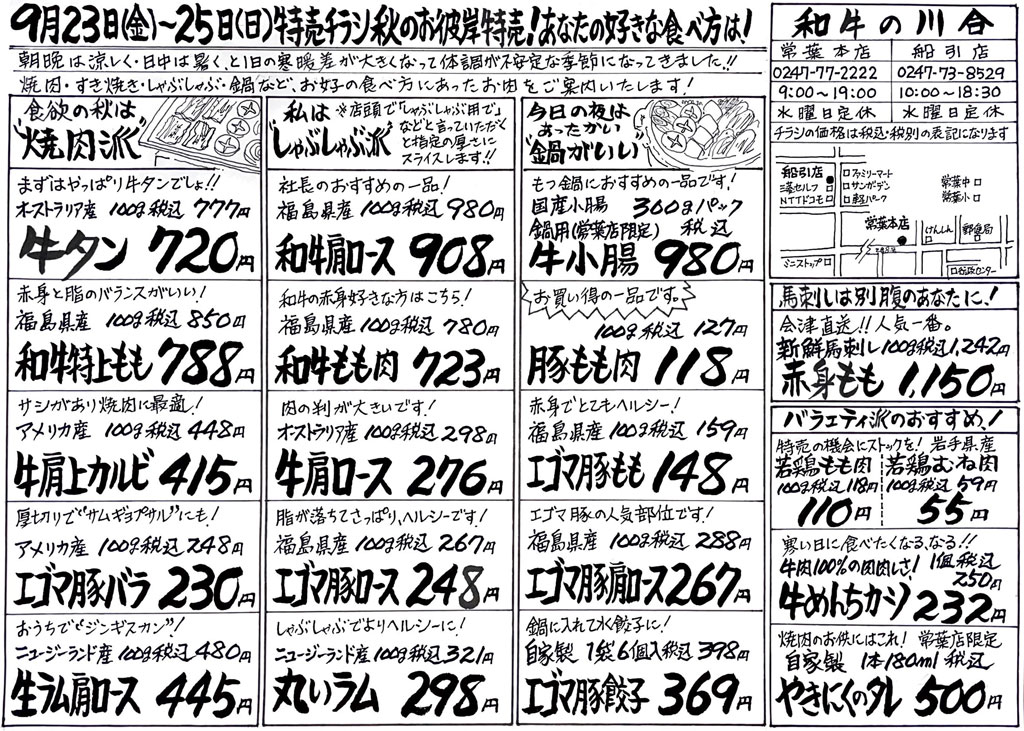 9月23日(金)～25日(日)特売チラシ秋のお彼岸特売!あなたの好きな食べ方は!
朝晩は涼しく・日中は暑く、と1日の寒暖差が大きくなって体調が不安定な季節になってきました!!
焼肉・すき焼き・しゃぶしゃぶ・鍋など、お好の食べ方にあったお肉をご案内いたします!
食欲の秋は
"焼肉派"
まずはやっぱり牛タンでしょ!!
オーストラリア産 100g税込 777円
牛タン 720円
赤身と脂のバランスがいい!
福島県産 100g税込 850円
和牛特上もも 788円
サシがあり焼肉に最適!
アメリカ産 100g税込 448円
牛肩上カルビ 415円
厚切りで"サムギョプサル"にも!
アメリカ産 100g税込 248円
エゴマ豚バラ 230円
おうちで"ジンギスカン"!
ニュージーランド産 100g税込 480円
生ラム肩ロース 445円
私は
"しゃぶしゃぶ派"
※店頭で「しゃぶしゃぶ用で」
などと言っていただく
と指定の厚さに
スライスします!!
社長のおすすめの一品!
福島県産 100g税込 980円
和牛肩ロース 908円
和牛の赤身好きな方はこちら!
福島県産 100g税込 780円
和牛もも肉 723円
肉の判が大きいです!
オーストラリア産 100g税込 298円
牛肩ロース 276円
脂が落ちてさっぱり、ヘルシーです!
福島県産 100g税込 267円
エゴマ豚ロース 248円
しゃぶしゃぶでよりヘルシーに!
ニュージーランド産 100g税込 321円
丸いラム 298円
今日の夜は
あったかい
"鍋がいい"
もつ鍋におすすめの一品です!
国産小腸 300gパック
鍋用(常葉店限定) 税込
牛小腸 980円
お買い得の一品です。
100g税込 127円
豚もも肉 118円
赤身でとてもヘルシー!
福島県産 100g税込 159円
エゴマ豚もも 148円
エゴマ豚の人気部位です!
福島県産 100g税込 288円
エゴマ豚肩ロース 267円
鍋に入れて水餃子に!
自家製 1袋6個入税込 398円
エゴマ豚餃子 369円
和牛の川合
常葉本店 船引店
0247-77-2222 0247-73-8529
9:00～19:00 10:00～18:30
水曜日定休 水曜日定休
チラシの価格は税込・税別の表記になります
船引店
ファミリーマート
サンガーデン
軽パーク
NTTドコモ
常葉中
常葉小
常葉本店
げんしん
郵便局
ミニストップ
馬刺しは別腹のあなたに!
会津直送!!人気一番。
新鮮馬刺し100g税込1,242円
赤身もも 1,150円
バラエティ派のおすすめ!
特売の機会にストックを! 岩手県産
若鶏もも肉 若鶏むね肉
100g税込118円 100g税込59円
110円 55円
寒い日に食べたくなる、なる!!
牛肉100%の肉肉しさ! 1個税込
250円
牛めんちカツ 232円
焼肉のお供にはこれ! 常葉店限定
自家製 1本180ml 税込
やきにくのタレ 500円